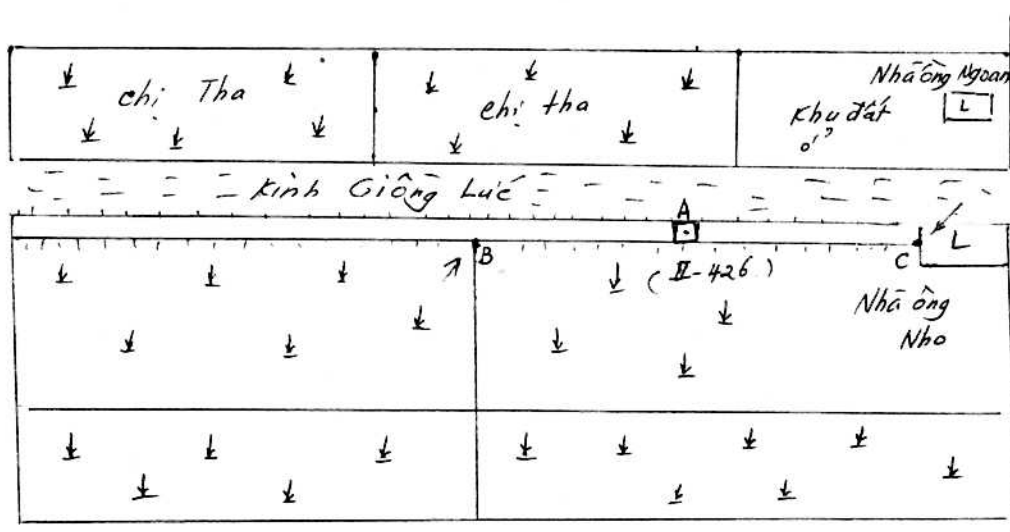 chị Tha
chị tha
Nhà ông Ngoan
L
Khu đất
ở
Kinh Giồng Lức
A
B
(II-426)
C
L
Nhà ông
Nho